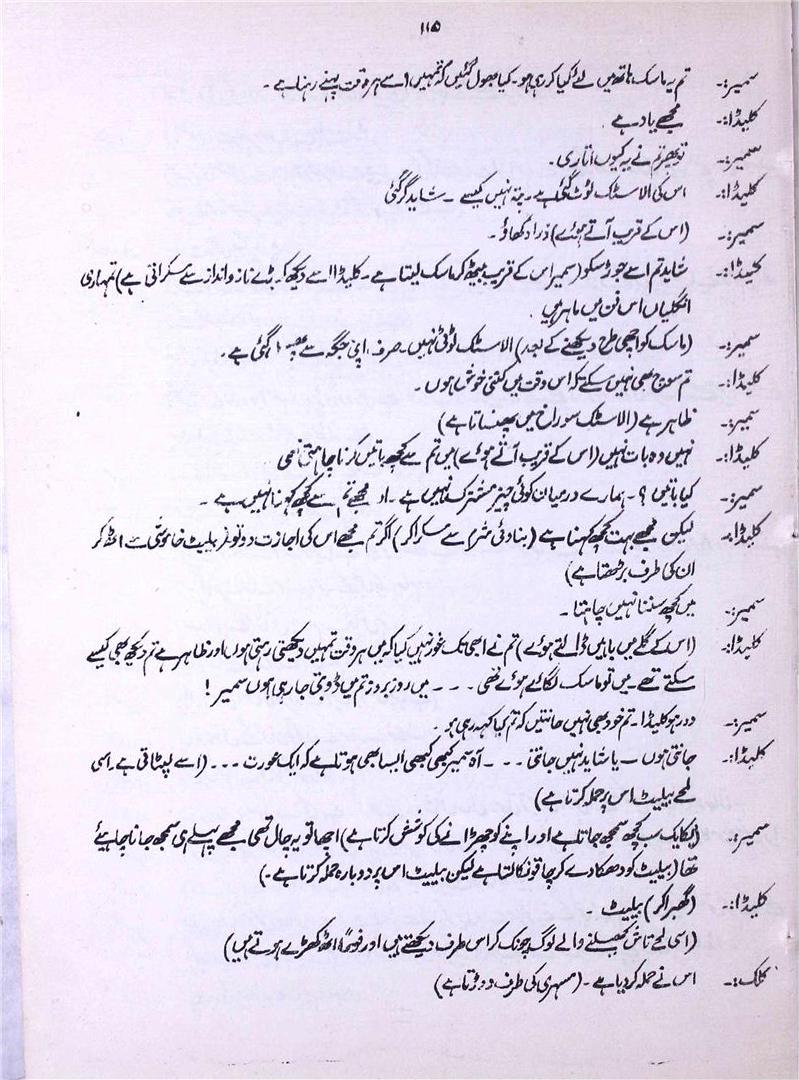 ۱۱۵
سمیر:۔ تم یہ ماسک ہاتھ میں لئے کیا کر رہی ہو۔ کیا بھول گئیں کہ تمہیں اسے ہر وقت پہنے رہنا ہے۔
کلیڈا:۔ مجھے یاد ہے
سمیر:۔ تو پھر تم نے یہ کیوں اتاری۔
کلیڈا:۔ اس کی الاسٹک ٹوٹ گئی ہے۔ پتہ نہیں کیسے ۔ شاید گر گئی
سمیر:۔ (اس کے قریب آتے ہوئے) ذرا دکھاؤ۔
کلیڈا:۔ شاید تم اسے جوڑ سکو (سمیر اس کے قریب بیٹھ کر ماسک لیتا ہے۔ کلیڈا اسے دیکھ کر بڑے ناز و انداز سے مسکراتی ہے) تمہاری
انگلیاں اس فن میں ماہر ہیں
سمیر:۔ (ماسک کو اچھی طرح دیکھنے کے بعد) الاسٹک ٹوٹی نہیں۔ صرف اپنی جگہ سے گئی ہے۔
کلیڈا:۔ تم سوچ بھی نہیں سکتے کہ اس وقت میں کتنی خوش ہوں۔
سمیر:۔ ظاہر ہے (الاسٹک سوراخ میں پھنساتا ہے)
کلیڈا:۔ نہیں وہ بات نہیں (اس کے قریب آتے ہوئے) میں تم سے کچھ باتیں کرنا چاہتی تھی
سمیر:۔ کیا باتیں ؟۔ ہمارے درمیان کوئی چیز مشترک نہیں ہے۔ اور مجھے تم سے کچھ کہنا نہیں ہے۔
کلیڈا:۔ لیکن مجھے بہت کچھ کہنا ہے (بناوٹی شرم سے مسکرا کر) اگر تم مجھے اس کی اجازت دو تو (ہیلیٹ خاموشی سے اٹھ کر
ان کی طرف بڑھتا ہے)
سمیر:۔ میں کچھ سننا نہیں چاہتا۔
کلیڈا:۔ (اس کے گلے میں باہیں ڈالتے ہوئے) تم نے ابھی تک غور نہیں کیا کہ میں ہر وقت تمہیں دیکھتی رہتی ہوں اور ظاہر ہے تم دیکھ بھی کیسے
سکتے تھے۔ میں تو ماسک لگائے ہوئے تھی ۔۔۔ میں روز بروز تم میں ڈوبتی جا رہی ہوں سمیر !
سمیر:۔ دور ہو کلیڈا۔ تم خود بھی نہیں جانتیں کہ تم کیا کہہ رہی ہو۔
کلیڈا:۔ جانتی ہوں ۔ یا شاید نہیں جانتی ۔۔۔ آہ سمیر کبھی کبھی ایسا بھی ہوتا ہے کہ ایک عورت ۔۔۔ (اسے لپٹاتی ہے۔ اسی
لمحے ہیلیٹ اس پر حملہ کرتا ہے)
سمیر:۔ (یکایک سب کچھ سمجھ جاتا ہے اور اپنے کو چھڑانے کی کوشش کرتا ہے) اچھا تو یہ چال تھی مجھے پہلے ہی سمجھ جانا چاہیئے
تھا (ہیلیٹ کو دھکا دے کر چاقو نکالتا ہے لیکن ہیلیٹ اس پر دوبارہ حملہ کرتا ہے۔)
کلیڈا:۔ (گھبرا کر) ہیلیٹ ۔
(اسی لمحے تاش کھیلنے والے لوگ چونک کر اس طرف دیکھتے ہیں اور فوراً اٹھ کھڑے ہوتے ہیں)
کلک:۔ اس نے حملہ کر دیا ہے۔ (مسہری کی طرف دوڑتا ہے)